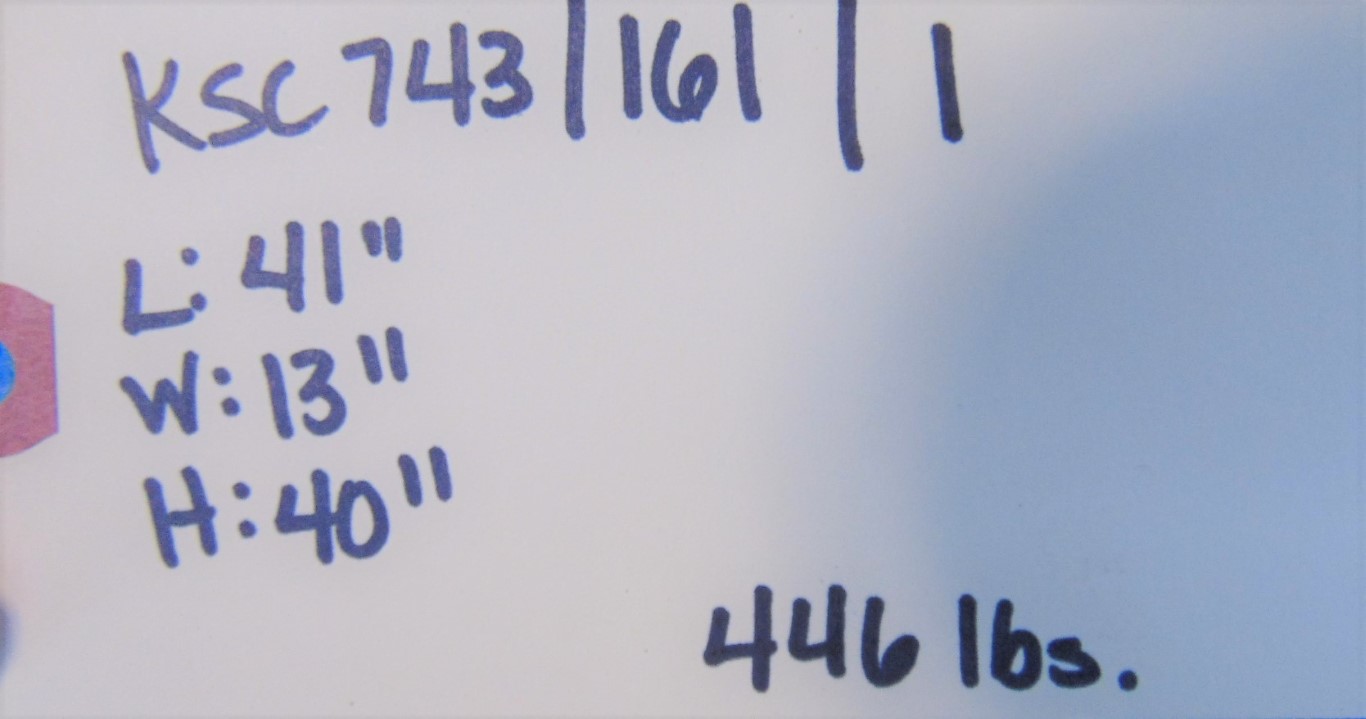 KSC 743 | 161 | 1
L: 41"
W: 13"
H: 40"
446 lbs.